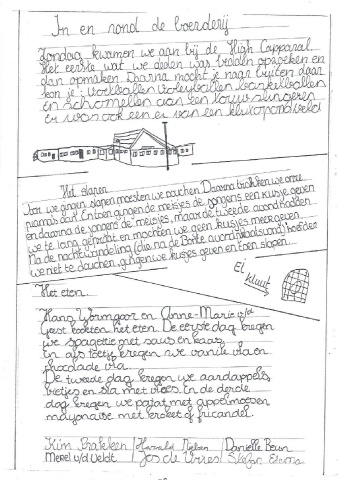 In en rond de boerderij
Zondag kwamen we aan bij de High Chapparal.
Het eerste wat we deden was bedden opzoeken en
dan opmaken. Daarna mocht je naar buiten daar
kon je: voetballen volleyballen basketballen
en schommelen aan een touw slingeren
Er was ook een
Het slapen
Voor we gingen slapen moesten we douchen. Daarna trokken we onze
pyama's aan. En toen gingen de meisjes de jongens een kusje geven
en daarna de jongens de meisjes, maar de tweede avond hadden
we te lang gepraat en mochten we geen kusjes meer geven
Na de nachtwandeling (die na de Bonte avond was) hoefden
we niet te douchen, gingen we kusjes geven en toen slapen.
Ei
kluut
Het eten.
Hans Wormgoor en Anne-Marie v/d
Geest kookten het eten. De eerste dag kregen
we spagettie met saus en kaas
En als toetje kregen we vanille vla en
chocolade vla.
De tweede dag kregen we aardappels,
bietjes en sla met vlees. En de derde
dag kregen we patat met appelmoes en
mayonaise met kroket of fricandel.
Kim Harmela Daniëlle Beun
Merel v/d Veldt Jos de Vries Stefan